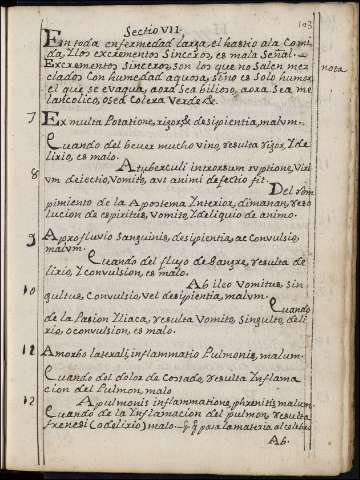 Sectio VII,
103
En toda enfermedad larga, el hastio ala Comi
da, Ilos excrementos Sinceros, es mala Señal.
Excrementos Sinceros, son los que no salen, mez
nota
clados Con humedad aquosa, seño es Solo humor
el que se evaqua, aora Sea bilioso, aora Sea me
lancolico, osea Colera Verde &.
7 Ex multa Potatione, rigor, & desipientia, malum.
Cuando del beuer mucho vino, resulta rigor, I de
lirio, es malo.
8 A tuberculi introrsum ruptione, Viri
um deiectio, Vomito, aut animi defectio fit.
Del rom
pimiento de la Apostema Interior, dimanan, reso
lucion de espiritus, Vomito, I deliquio de animo.
9 A profluvio Sanguinis, desipientia, ac Convulsio,
malum.
Cuando del flujo de Sangre, resulta de
lirio, I convulsion, es malo.
10 Ab ileo Vomitus, Sin
gultus, Convulsio, Vel desipientia, malum.
Cuando
de la Pasion Iliaca, resulta Vomito, Singulto, deli
rio, o convulsion, es malo.
11 A morbo laterali, inflammatio Pulmonis, malum.
Cuando del dolor de Costado, resulta Inflama
cion del Pulmon, malo.
12 A pulmonis inflammatione, phrenitis, malum.
Cuando de la Inflamacion del pulmon, resulta
frenesi (o delirio) malo. para la materia al celebro
Ab.